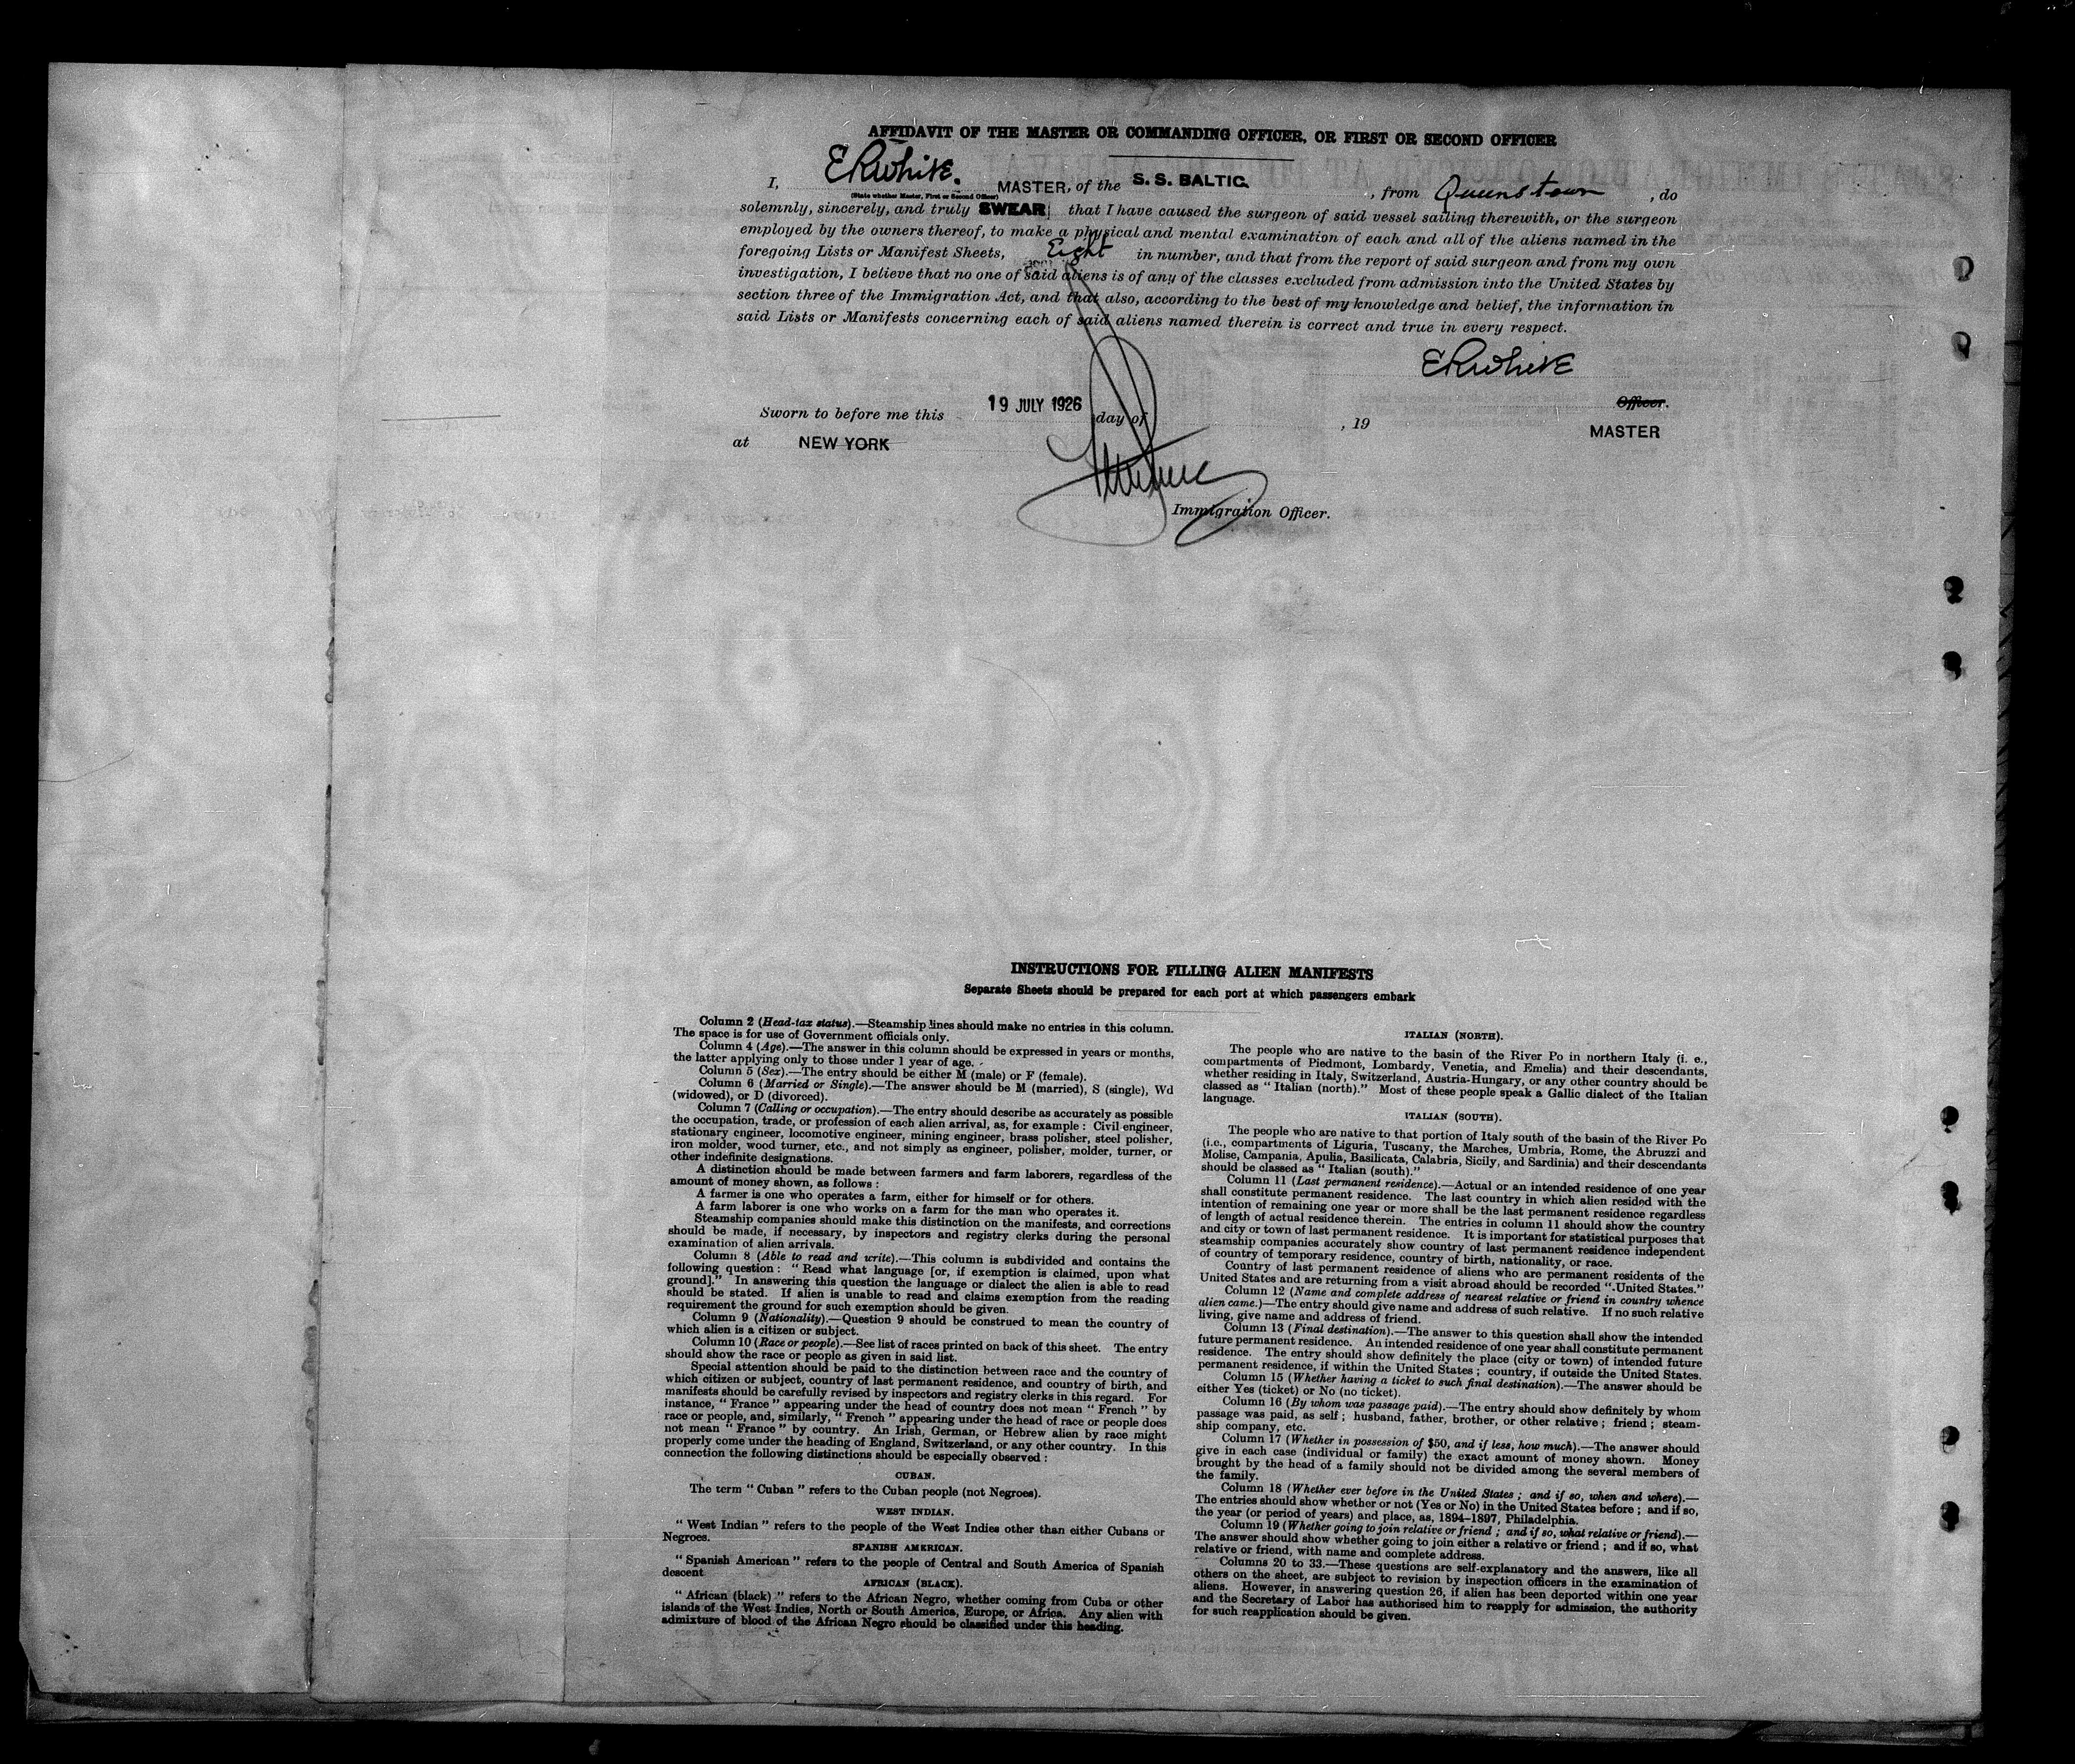 AFFIDAVIT OF THE MASTER OR COMMANDING OFFICER, OR FIRST OR SECOND OFFICER
I, ERWhite. MASTER, of the S. S. BALTIC. , from Queenstown , do
(State whether Master, First or Second Officer)
solemnly, sincerely, and truly SWEAR that I have caused the surgeon of said vessel sailing therewith, or the surgeon
employed by the owners thereof, to make a physical and mental examination of each and all of the aliens named in the
foregoing Lists or Manifest Sheets, Eight in number, and that from the report of said surgeon and from my own
investigation, I believe that no one of said aliens is of any of the classes excluded from admission into the United States by
section three of the Immigration Act, and that also, according to the best of my knowledge and belief, the information in
said Lists or Manifests concerning each of said aliens named therein is correct and true in every respect.
ERWhite
Officer.
Sworn to before me this 19 JULY 1926 day of , 19
MASTER
at NEW YORK
Immigration Officer.
INSTRUCTIONS FOR FILLING ALIEN MANIFESTS
Separate Sheets should be prepared for each port at which passengers embark
Column 2 (Head-tax status).—Steamship lines should make no entries in this column.
The space is for use of Government officials only.
Column 4 (Age).—The answer in this column should be expressed in years or months,
the latter applying only to those under 1 year of age.
Column 5 (Sex).—The entry should be either M (male) or F (female).
Column 6 (Married or Single).—The answer should be M (married), S (single), Wd
(widowed), or D (divorced).
Column 7 (Calling or occupation).—The entry should describe as accurately as possible
the occupation, trade, or profession of each alien arrival, as, for example : Civil engineer,
stationary engineer, locomotive engineer, mining engineer, brass polisher, steel polisher,
iron molder, wood turner, etc., and not simply as engineer, polisher, molder, turner, or
other indefinite designations.
A distinction should be made between farmers and farm laborers, regardless of the
amount of money shown, as follows :
A farmer is one who operates a farm, either for himself or for others.
A farm laborer is one who works on a farm for the man who operates it.
Steamship companies should make this distinction on the manifests, and corrections
should be made, if necessary, by inspectors and registry clerks during the personal
examination of alien arrivals.
Column 8 (Able to read and write).—This column is subdivided and contains the
following question : “ Read what language [or, if exemption is claimed, upon what
ground].” In answering this question the language or dialect the alien is able to read
should be stated. If alien is unable to read and claims exemption from the reading
requirement the ground for such exemption should be given.
Column 9 (Nationality).—Question 9 should be construed to mean the country of
which alien is a citizen or subject.
Column 10 (Race or people).—See list of races printed on back of this sheet. The entry
should show the race or people as given in said list.
Special attention should be paid to the distinction between race and the country of
which citizen or subject, country of last permanent residence, and country of birth, and
manifests should be carefully revised by inspectors and registry clerks in this regard. For
instance, “ France ” appearing under the head of country does not mean “ French ” by
race or people, and, similarly, “ French ” appearing under the head of race or people does
not mean “ France ” by country. An Irish, German, or Hebrew alien by race might
properly come under the heading of England, Switzerland, or any other country. In this
connection the following distinctions should be especially observed :
CUBAN.
The term “ Cuban ” refers to the Cuban people (not Negroes).
WEST INDIAN.
“ West Indian ” refers to the people of the West Indies other than either Cubans or
Negroes.
SPANISH AMERICAN.
“ Spanish American ” refers to the people of Central and South America of Spanish
descent
AFRICAN (BLACK).
“ African (black) ” refers to the African Negro, whether coming from Cuba or other
islands of the West Indies, North or South America, Europe, or Africa. Any alien with
admixture of blood of the African Negro should be classified under this heading.
ITALIAN (NORTH).
The people who are native to the basin of the River Po in northern Italy (i. e.,
compartments of Piedmont, Lombardy, Venetia, and Emelia) and their descendants,
whether residing in Italy, Switzerland, Austria-Hungary, or any other country should be
classed as “ Italian (north).” Most of these people speak a Gallic dialect of the Italian
language.
ITALIAN (SOUTH).
The people who are native to that portion of Italy south of the basin of the River Po
(i.e., compartments of Liguria, Tuscany, the Marches, Umbria, Rome, the Abruzzi and
Molise, Campania, Apulia, Basilicata, Calabria, Sicily, and Sardinia) and their descendants
should be classed as “ Italian (south).”
Column 11 (Last permanent residence).—Actual or an intended residence of one year
shall constitute permanent residence. The last country in which alien resided with the
intention of remaining one year or more shall be the last permanent residence regardless
of length of actual residence therein. The entries in column 11 should show the country
and city or town of last permanent residence. It is important for statistical purposes that
steamship companies accurately show country of last permanent residence independent
of country of temporary residence, country of birth, nationality, or race.
Country of last permanent residence of aliens who are permanent residents of the
United States and are returning from a visit abroad should be recorded “ United States.”
Column 12 (Name and complete address of nearest relative or friend in country whence
alien came.)—The entry should give name and address of such relative. If no such relative
living, give name and address of friend.
Column 13 (Final destination).—The answer to this question shall show the intended
future permanent residence. An intended residence of one year shall constitute permanent
residence. The entry should show definitely the place (city or town) of intended future
permanent residence, if within the United States ; country, if outside the United States.
Column 15 (Whether having a ticket to such final destination).—The answer should be
either Yes (ticket) or No (no ticket).
Column 16 (By whom was passage paid).—The entry should show definitely by whom
passage was paid, as self ; husband, father, brother, or other relative ; friend ; steam-
ship company, etc.
Column 17 (Whether in possession of $50, and if less, how much).—The answer should
give in each case (individual or family) the exact amount of money shown. Money
brought by the head of a family should not be divided among the several members of
the family.
Column 18 (Whether ever before in the United States ; and if so, when and where).—
The entries should show whether or not (Yes or No) in the United States before ; and if so,
the year (or period of years) and place, as, 1894–1897, Philadelphia.
Column 19 (Whether going to join relative or friend ; and if so, what relative or friend).—
The answer should show whether going to join either a relative or friend ; and if so, what
relative or friend, with name and complete address.
Columns 20 to 33.—These questions are self-explanatory and the answers, like all
others on the sheet, are subject to revision by inspection officers in the examination of
aliens. However, in answering question 26, if alien has been deported within one year
and the Secretary of Labor has authorised him to reapply for admission, the authority
for such reapplication should be given.